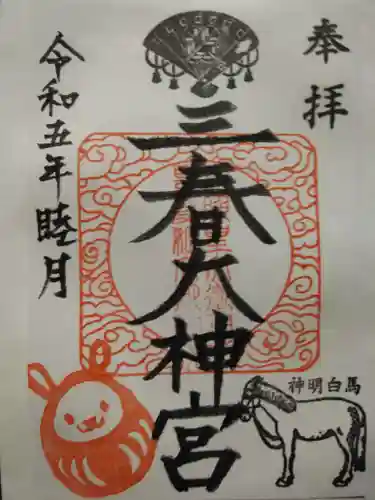 奉拝
三春大神宮
令和五年睦月
神明白馬